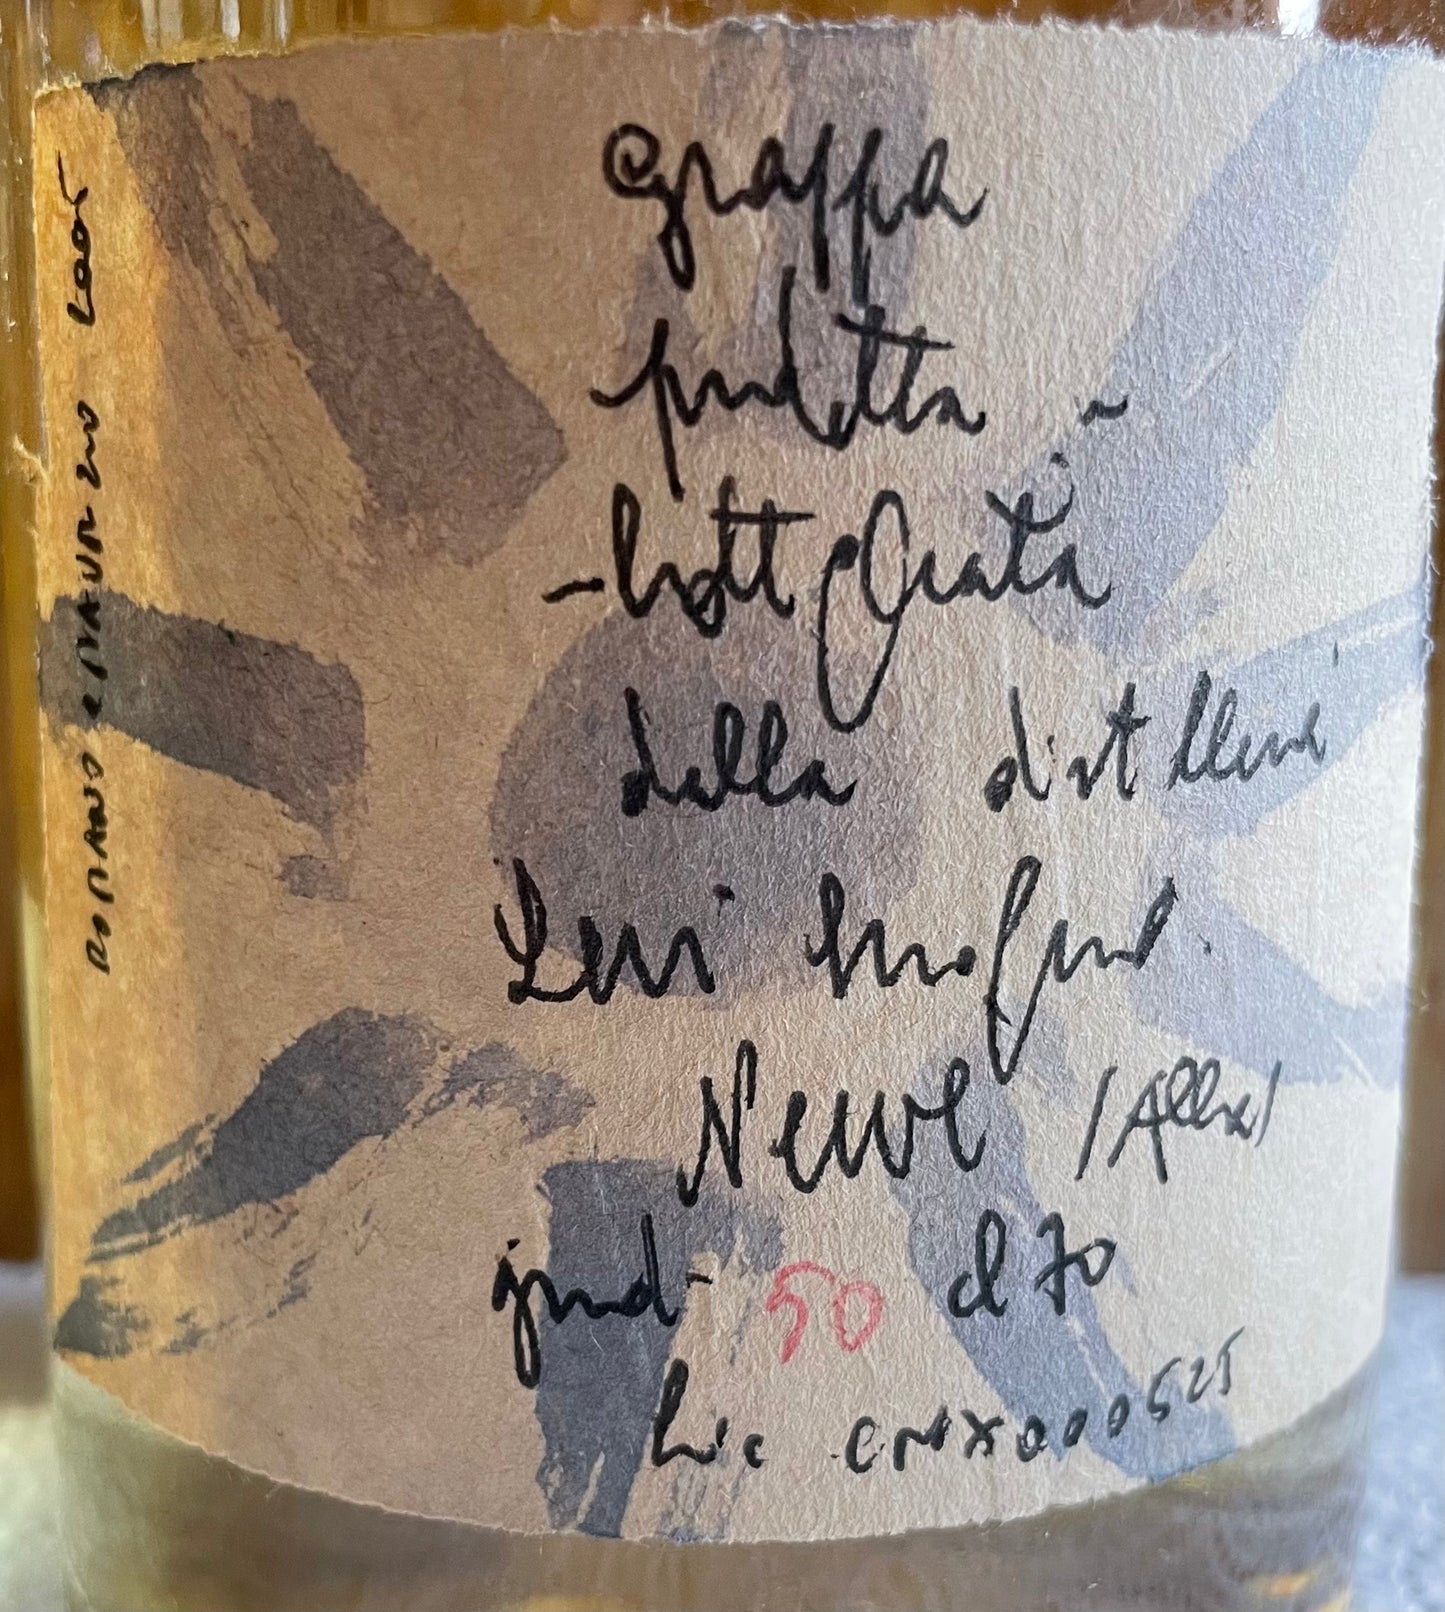 grappa
prodotta -
- bottigliata
della distilleria
Levi Serafino
Neive (Alba)
grad. 50 cl 70
lic CNX000525
ROMANO LEVI 2005